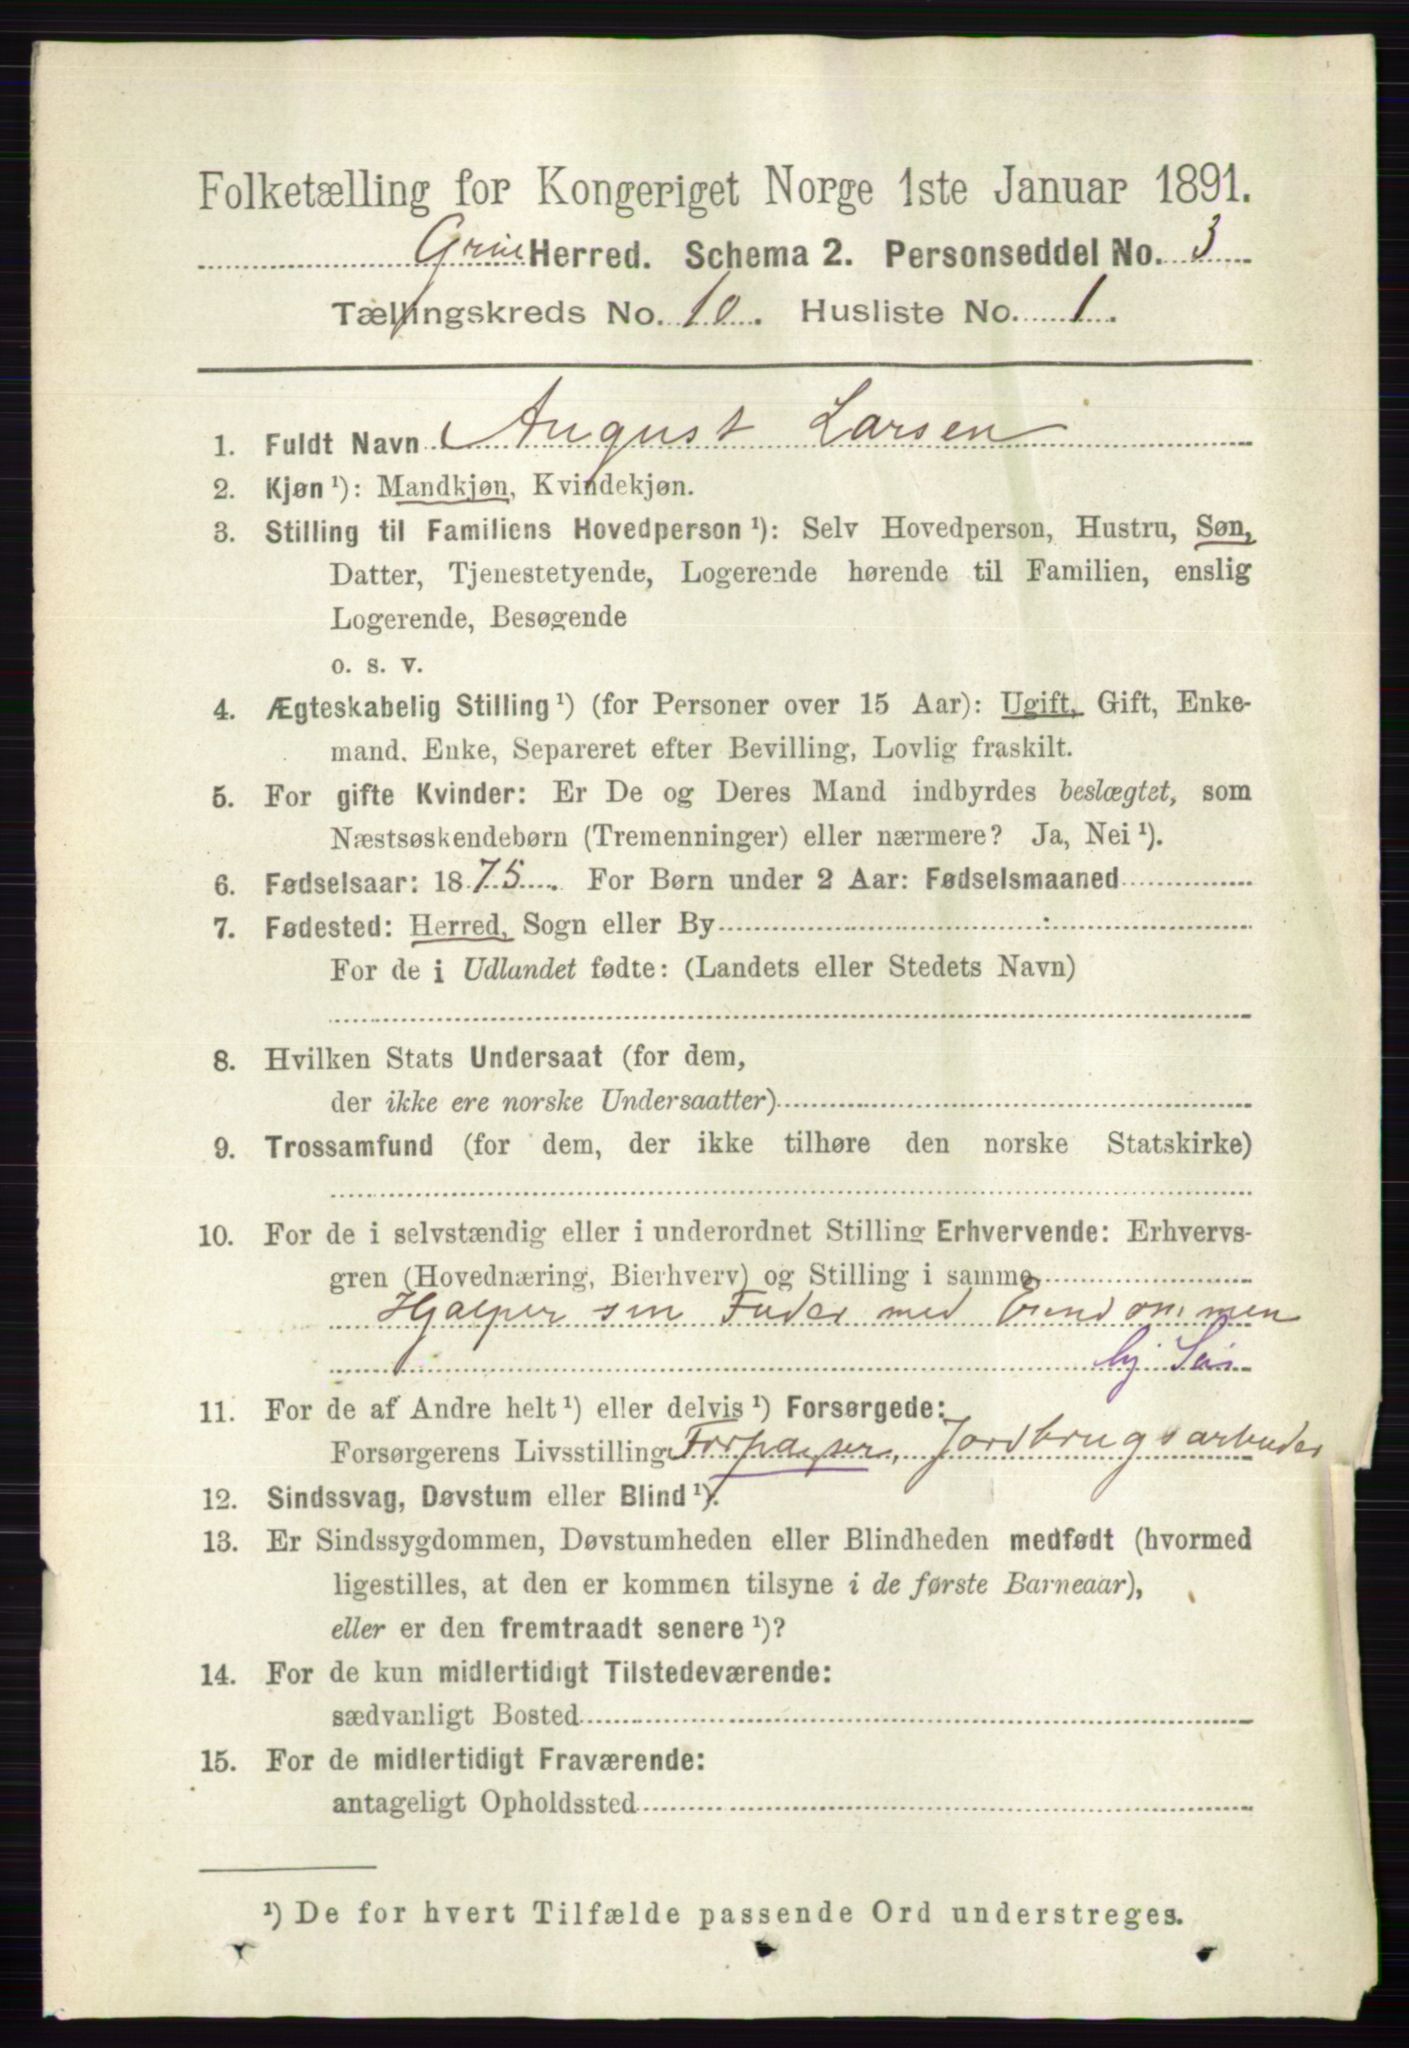 Folketælling for Kongeriget Norge 1ste Januar 1891.
Grue Herred. Schema 2. Personseddel No. 3
Tællingskreds No. 10. Husliste No. 1.
1. Fuldt Navn August Larsen
2. Kjøn ¹): Mandkjøn, Kvindekjøn.
3. Stilling til Familiens Hovedperson ¹): Selv Hovedperson, Hustru, Søn,
Datter, Tjenestetyende, Logerende hørende til Familien, enslig
Logerende, Besøgende
o. s. v.
4. Ægteskabelig Stilling ¹) (for Personer over 15 Aar): Ugift, Gift, Enke-
mand, Enke, Separeret efter Bevilling, Lovlig fraskilt.
5. For gifte Kvinder: Er De og Deres Mand indbyrdes beslægtet, som
Næstsøskendebørn (Tremenninger) eller nærmere? Ja, Nei ¹).
6. Fødselsaar: 1875. For Børn under 2 Aar: Fødselsmaaned
7. Fødested: Herred, Sogn eller By
For de i Udlandet fødte: (Landets eller Stedets Navn)
8. Hvilken Stats Undersaat (for dem,
der ikke ere norske Undersaatter)
9. Trossamfund (for dem, der ikke tilhøre den norske Statskirke)
10. For de i selvstændig eller i underordnet Stilling Erhvervende: Erhvervs-
gren (Hovednæring, Bierhverv) og Stilling i samme
Hjælper sin Fader med Eiendommen
11. For de af Andre helt ¹) eller delvis ¹) Forsørgede:
Forsørgerens Livsstilling Forpagter, Jordbrugsarbeider
12. Sindssvag, Døvstum eller Blind ¹).
13. Er Sindssygdommen, Døvstumheden eller Blindheden medfødt (hvormed
ligestilles, at den er kommen tilsyne i de første Barneaar),
eller er den fremtraadt senere ¹)?
14. For de kun midlertidigt Tilstedeværende:
sædvanligt Bosted
15. For de midlertidigt Fraværende:
antageligt Opholdssted
¹) De for hvert Tilfælde passende Ord understreges.